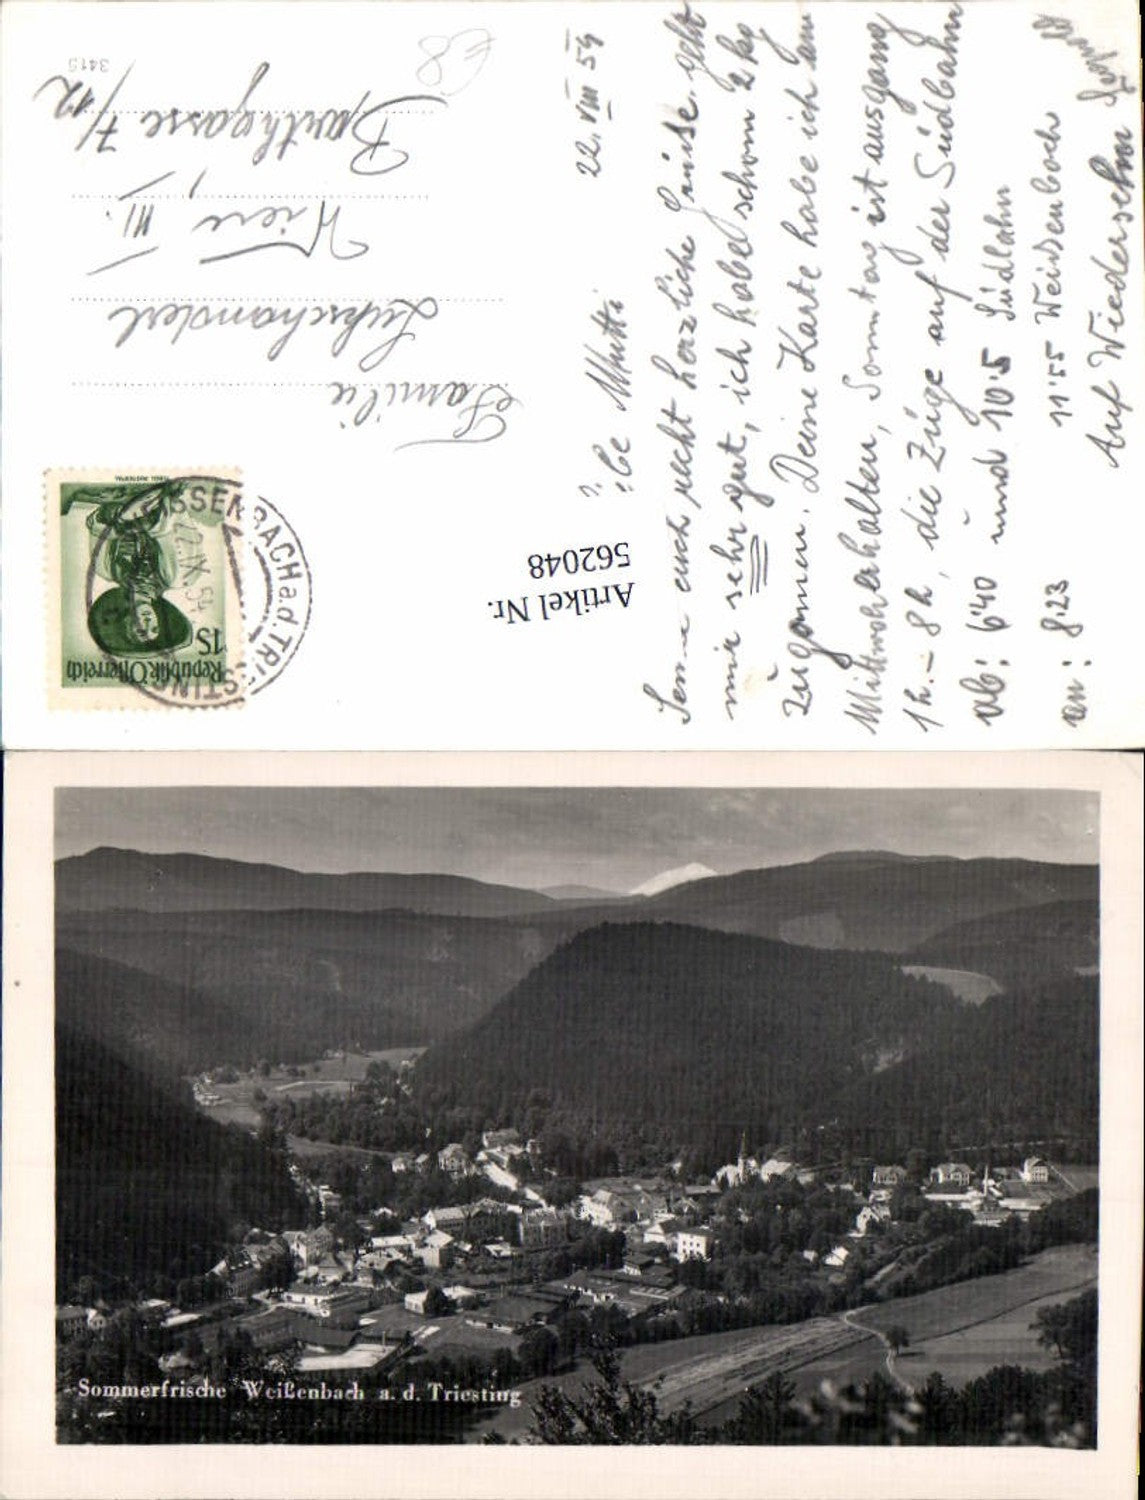 22. VIII 54
Mutti
Sende euch recht herzliche Grüße. geht
mir sehr gut, ich habe schon 2 kg
zugenomen. Deine Karte habe ich am
Mittwoch erhalten, Sonntag ist ausgang
1h - 8h, die Züge auf der Südbahn
ab: 6'40 und 10'5 Südbahn
an: 8.23 11'55 Weißenbach
Auf Wiedersehn
3415
Familie
Wien, III.
Barthgasse 7/12
Republik Österreich
1S
WEISSENBACH a.d. TRIESTING
Artikel Nr.
562048
Sommerfrische Weißenbach a. d. Triesting